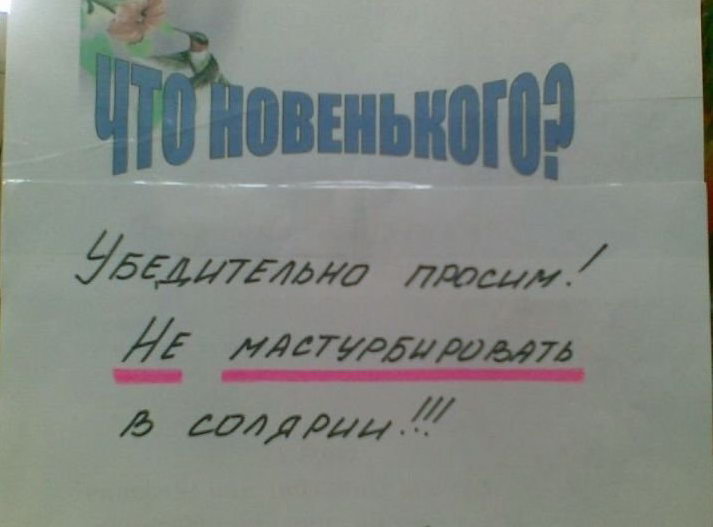 ЧТО НОВЕНЬКОГО?
УБЕДИТЕЛЬНО ПРОСИМ!
НЕ МАСТУРБИРОВАТЬ
В СОЛЯРИИ!!!